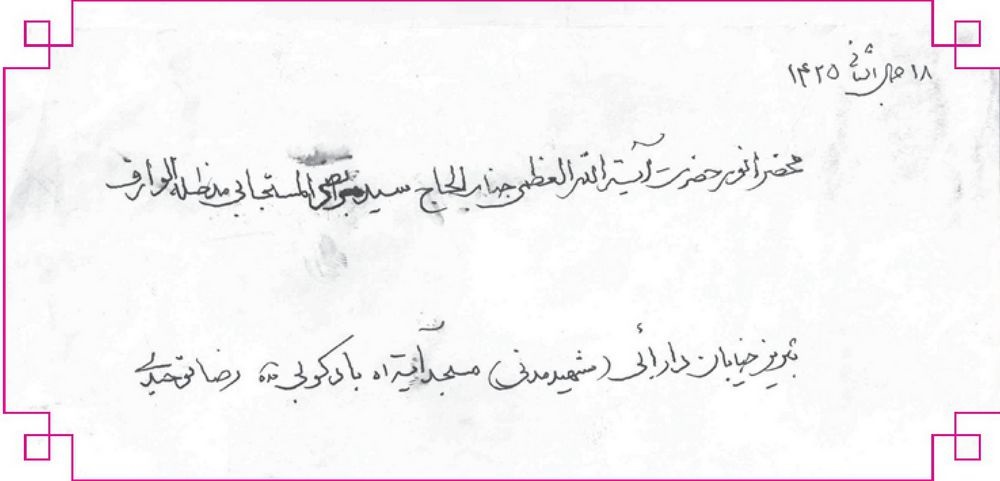 ۱۸ جمادی الثانی ۱۴۲۵
محضر انور حضرت آیت الله العظمی جناب الحاج سید مرتضی المستجابی مد ظله الوارف
تبریز خیابان دارائی (شهید مدنی) مسجد آیة اله بادکوبی قده رضا توحیدی